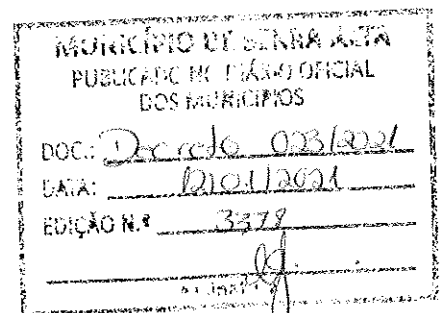 MUNICÍPIO DE SERRA ALTA
PUBLICADO NO DIÁRIO OFICIAL
DOS MUNICÍPIOS
DOC.: Decreto 023/2021
DATA: 12/01/2021
EDIÇÃO N.º 3378